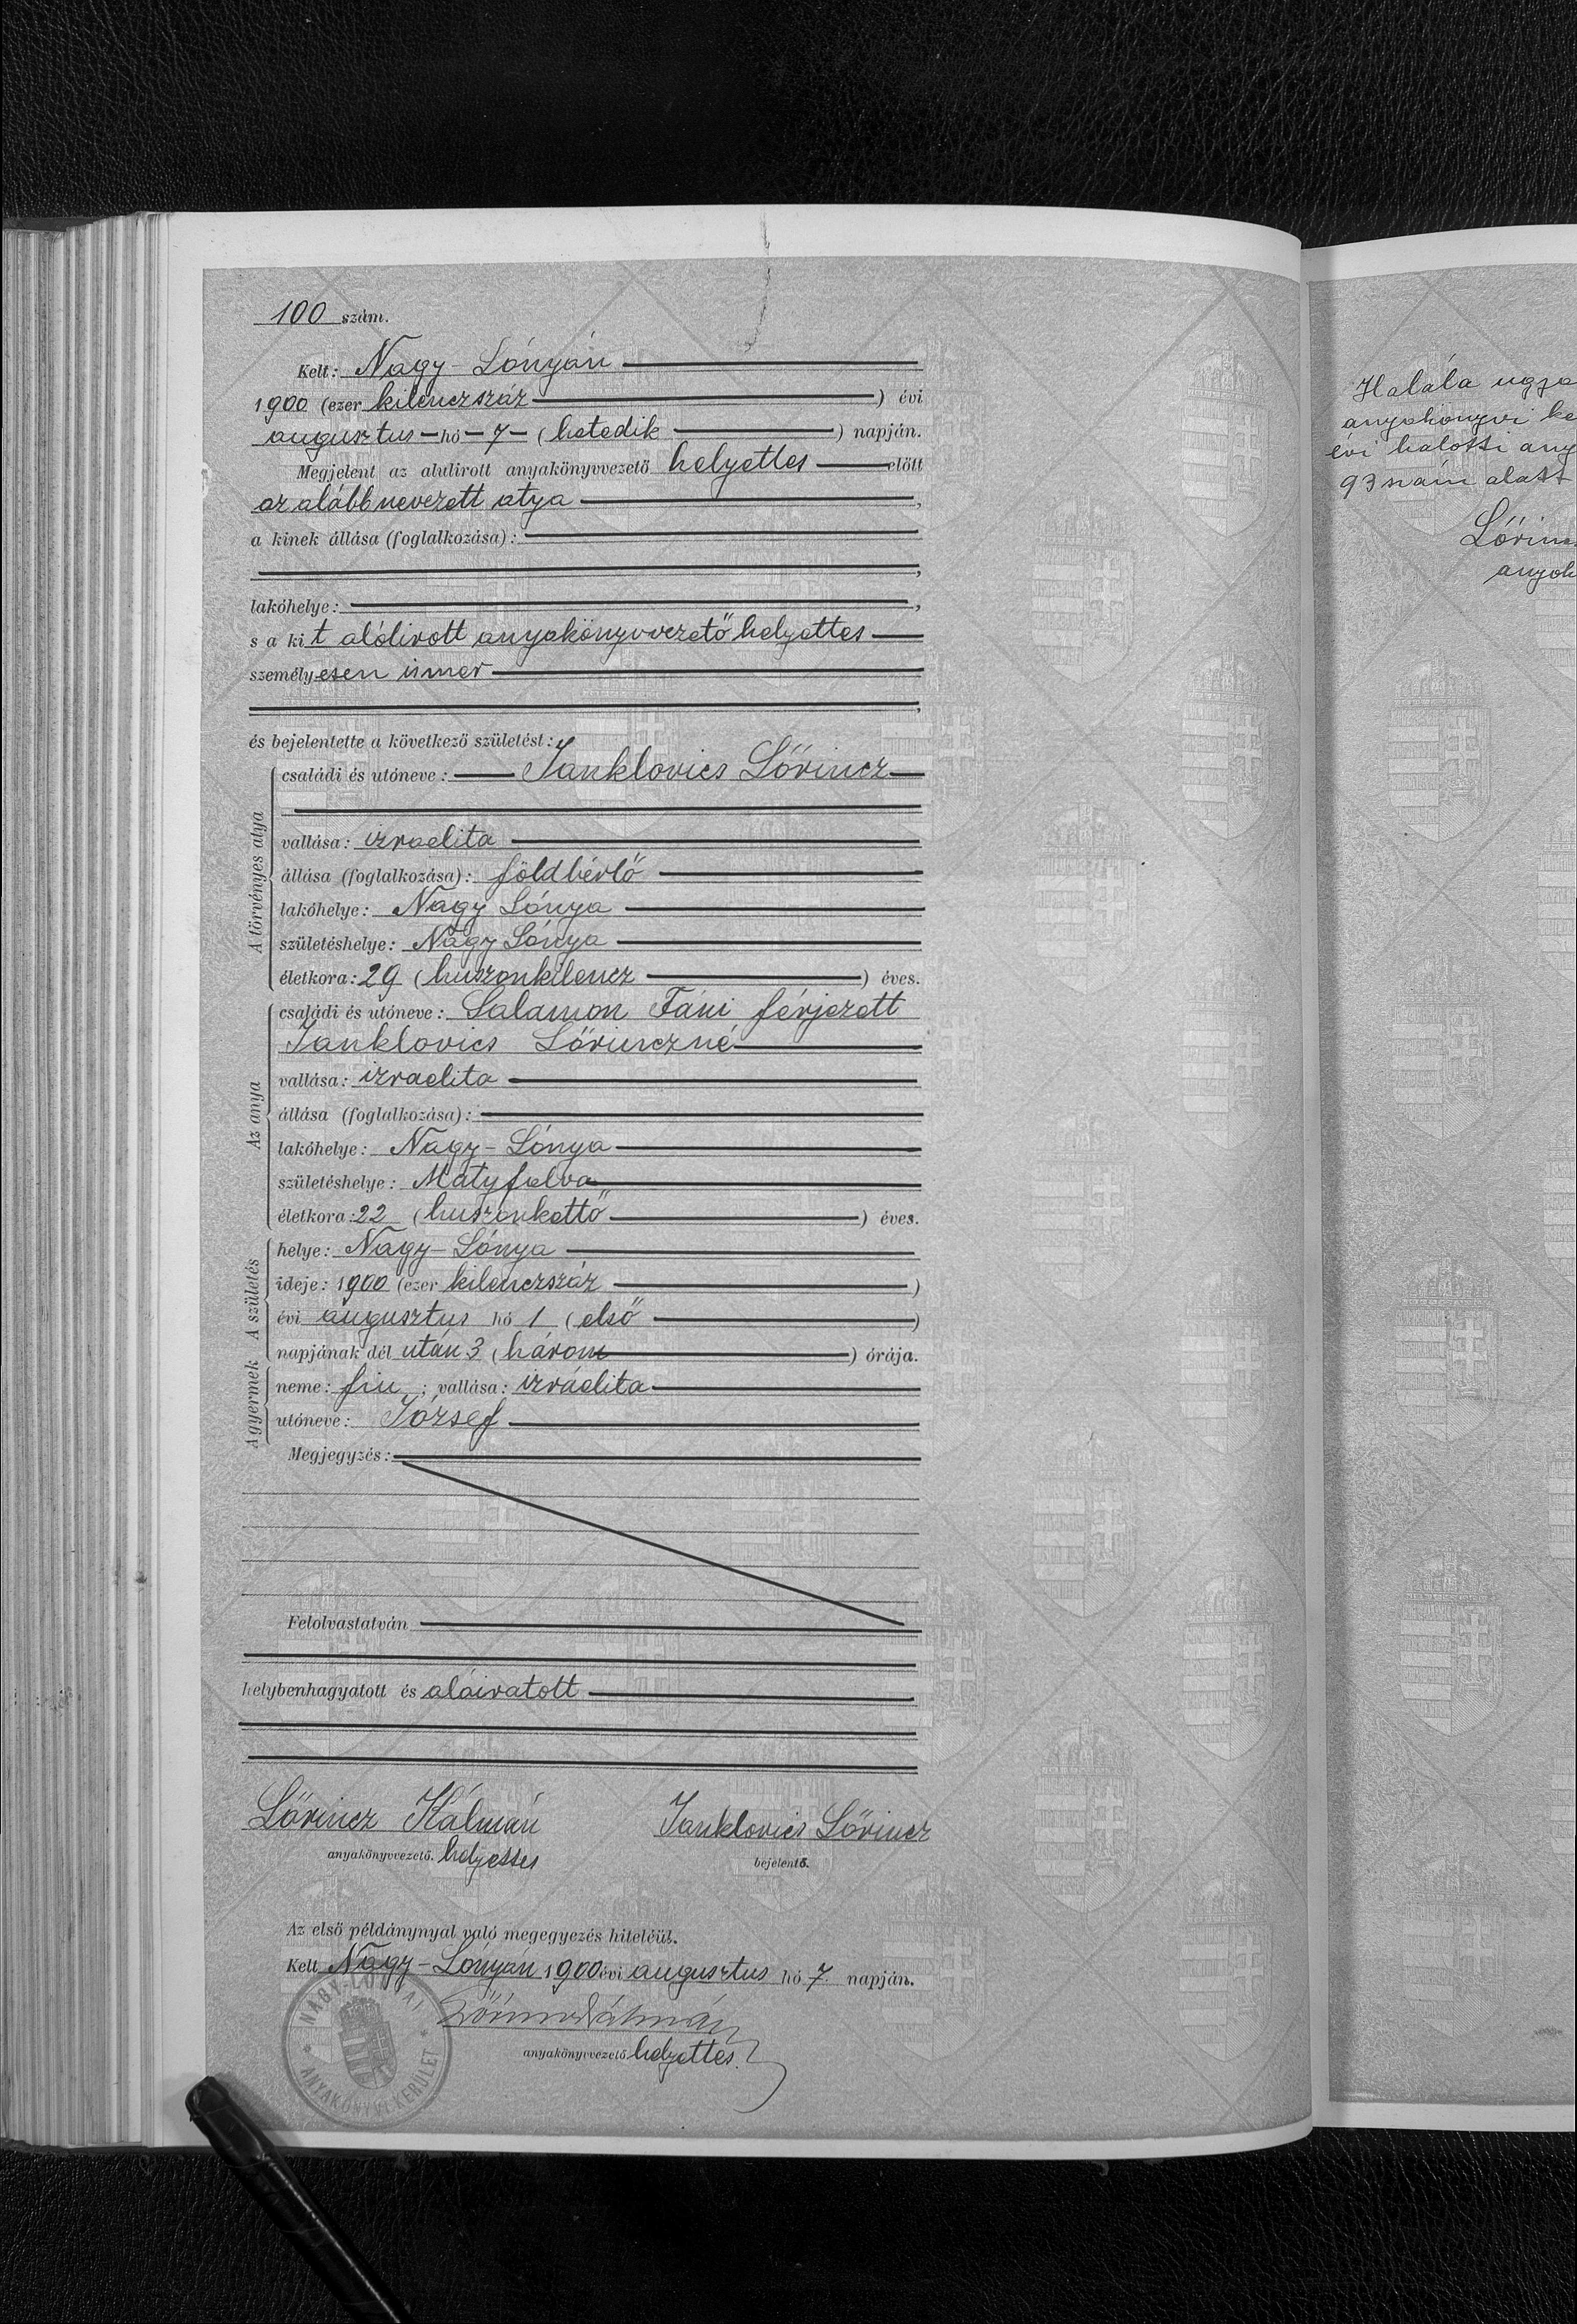 100 szám.
Kelt: Nagy-Lónyán
1900 (ezer kilenczszáz) évi
augusztus hó 7 (hetedik) napján.
Megjelent az alulirott anyakönyvvezető helyettes előtt
az alább nevezett atya,
a kinek állása (foglalkozása):
lakóhelye:
s a kit alólirott anyakönyvvezető helyettes
személyesen ismer
és bejelentette a következő születést:
A törvényes atya
családi és utóneve: Janklovics Lőrincz
vallása: izraelita
állása (foglalkozása): földbérlő
lakóhelye: Nagy Lónya
születéshelye: Nagy Lónya
életkora: 29 (huszonkilencz) éves.
Az anya
családi és utóneve: Salamon Fáni férjezett
Janklovics Lőrinczné
vallása: izraelita
állása (foglalkozása):
lakóhelye: Nagy-Lónya
születéshelye: Mátyfalva
életkora: 22 (huszonkettő) éves.
A születés
helye: Nagy-Lónya
ideje: 1900 (ezer kilenczszáz)
évi augusztus hó 1 (első)
napjának dél után 3 (három) órája.
A gyermek
neme: fiu; vallása: izráelita
utóneve: József
Megjegyzés:
Felolvastatván
helybenhagyatott és aláiratott
Lőrincz Kálmán
anyakönyvvezető. helyettes
Janklovics Lőrincz
bejelentő.
Az első példánynyal való megegyezés hiteléül.
Kelt Nagy-Lónyán 1900 évi augusztus hó 7. napján.
Lőrincz Kálmán
anyakönyvvezető helyettes.
NAGY-LÓNYAI
ANYAKÖNYVI KERÜLET
Halála ugya
anyakönyvi ke
évi halotti any
93 szám alatt
Lőrin
anyak